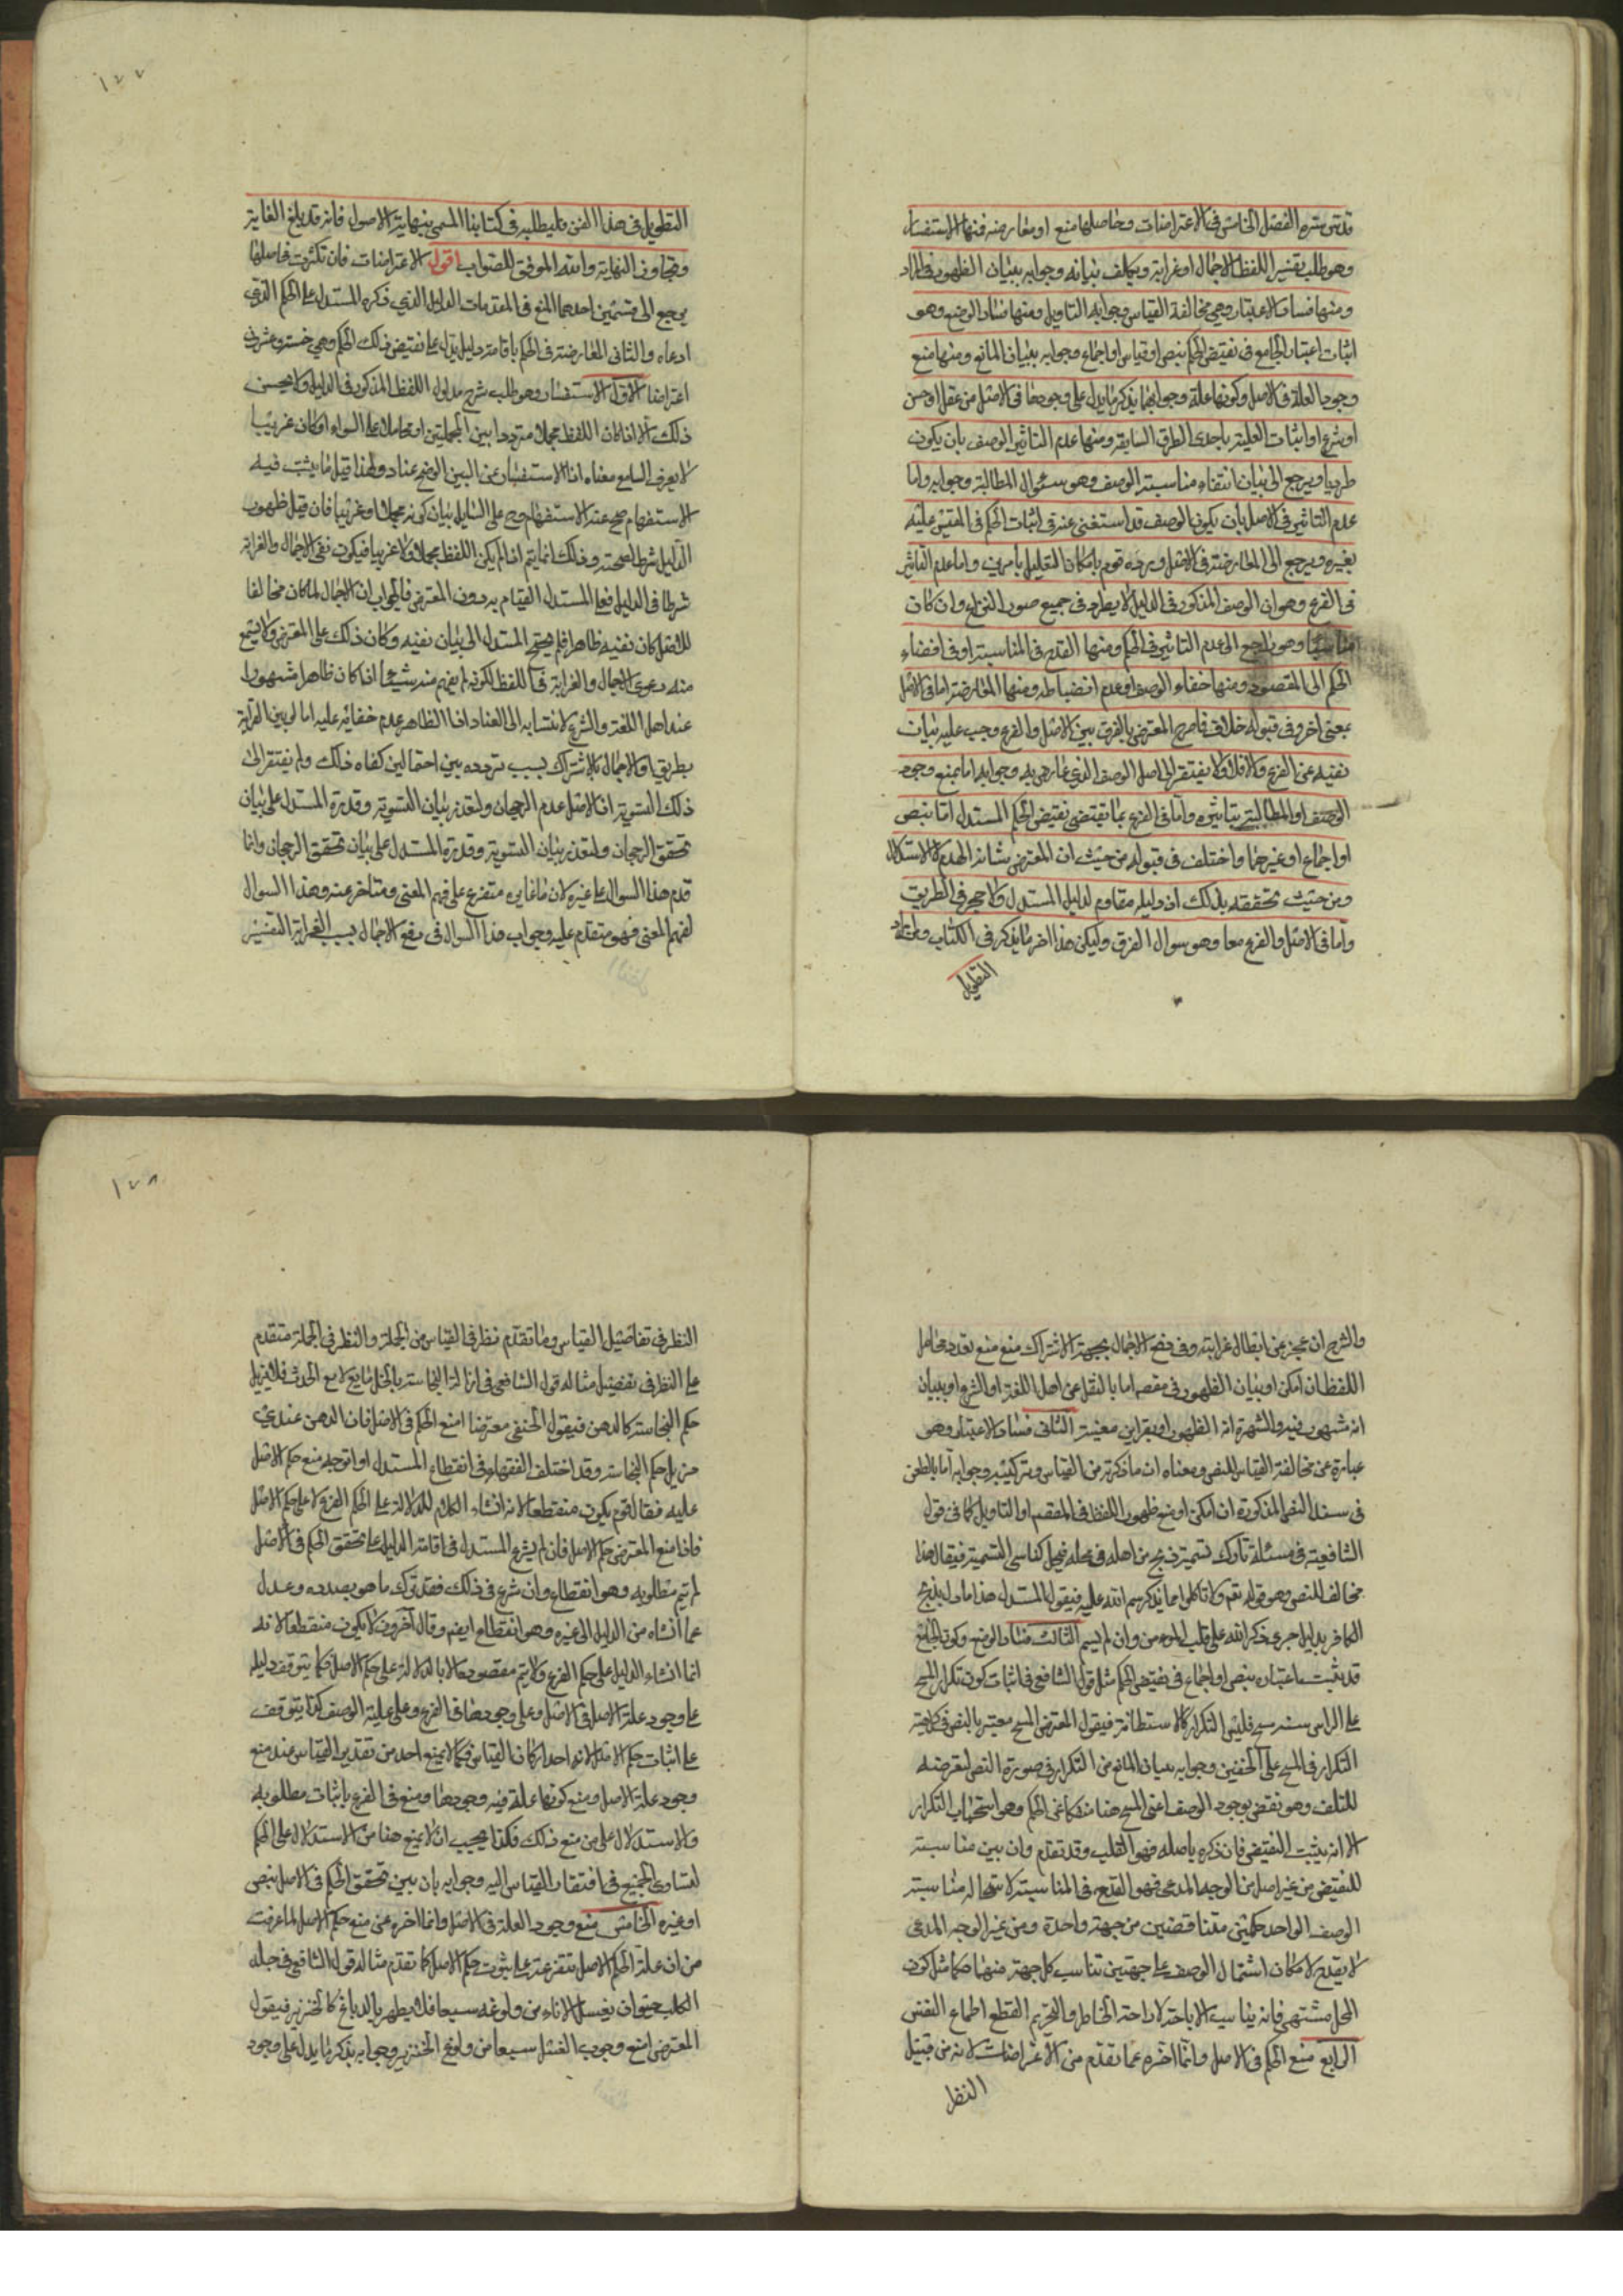 قدس سره الفصل الخامس في الاعتراضات وحاصلها منع او معارضة فمنها الاستفسار
وهو طلب تفسير اللفظ لاجمال او غرابة ويكلف بيانه وجوابه ببيان الظهور
ومنها فساد الاعتبار وهي مخالفة القياس وجوابه التاويل ومنها فساد الوضع وهو
اثبات اعتبار الجامع في نقيض الحكم بنص او قياس او اجماع وجوابه ببيان المانع ومنها منع
وجود العلة في الاصل وكونها علة وجوابهما بذكر ما يدل على وجودها في الاصل من عقل او حس
او شرع او اثبات العلية باحدى الطرق السابقة ومنها عدم التاثير الوصف بان يكون
طرديا ويرجع الى بيان انتفاء مناسبة الوصف وهو سوال المطالبة وجوابه واما
عدم التاثير في الاصل بان يكون الوصف قد استغنى عنه في اثبات الحكم في المقيس عليه
بغيره ويرجع الى المعارضة في الاصل ويرده قوم بامكان التعليل بأمرين واما عدم التاثير
في الفرع وهو ان الوصف المذكور في الدليل لا يطرد في جميع صور النزاع وان كان
مناسبا وهو راجع الى عدم التاثير في الحكم ومنها القدح في المناسبة او في افضاء
الحكم الى المقصود ومنها خفاء الوصف او عدم انضباطه ومنها المعارضة اما في الاصل
بمعنى اخر وفي قبوله خلاف فاصرح المعترض بالفرق بين الاصل والفرع وجب عليه بيان
نفيه عن الفرع والا فلا ولا يفتقر الى اصل الوصف الذي عارض به وجوابه اما بمنع وجود
الوصف او المطالبة بتاثيره وأما في الفرع بما يقتضي نقيض الحكم المستدل اما بنص
او اجماع او غيرهما واختلف في قبوله من حيث ان المعترض شانه الهدم لا الاستدلال
ومن حيث تحققه بذلك اذ دليله مقاوم لدليل المستدل ولا حجر في الطريق
واما في الاصل والفرع معا وهو سوال الفرق وليكن هذا اخر ما يذكر في الكتاب ومن اراد
التطويل
١٧٧
التطويل في هذا الفن فليطلبه في كتابنا المسمى بنهاية الاصول فانه قد بلغ الغاية
وتجاوز النهاية والله الموفق للصواب اقول الاعتراضات فان تكثرت فحاصلها
يرجع الى قسمين احدهما المنع في المقدمات الدليل الذي ذكره المستدل على الحكم الذي
ادعاه والثاني المعارضة في الحكم باقامة دليل يدل على نقيض ذلك الحكم وهي خمسة وعشرون
اعتراضا الاول الاستفسار وهو طلب شرح مدلول اللفظ المذكور في الدليل ولا يحسن
ذلك الا اذا كان اللفظ مجملا مترددا بين محملين او محامل على السواء او كان غريبا
لا يعرف السامع معناه اذ الاستفسار عن البين الواضح عناد ولهذا قيل ما يثبت فيه
الاستفهام صح عنه الاستفهام وح على السايل بيان كونه مجملا او غريبا فان قيل ظهور
الدليل شرط لصحته وذلك انما يتم اذا لم يكن اللفظ مجملا ولا غريبا فيكون نفي الاجمال والغرابة
شرطا في الدليل فعلى المستدل القيام به دون المعترض فالجواب ان الاجمال لما كان مخالفا
للاصل كان نفيه ظاهرا فلم يحتج المستدل الى بيان نفيه وكان ذلك على المعترض ولا يسمع
منه دعوى الاجمال والغرابة في اللفظ لكونه لم يفهم منه شيئا اذا كان ظاهرا مشهورا
عند اهل اللغة والشرع لانتسابه الى العناد اذا الظاهر عدم خفائه عليه اما لو بين الغرابة
بطريقها والاجمال بالاشتراك بسبب تردده بين احتمالين كفاه ذلك ولم يفتقر الى
ذلك التسوية اذ الاصل عدم الرجحان ولتعذر بيان التسوية وقدرة المستدل على بيان
تحقق الرجحان ولتعذر بيان التسوية وقدرة المستدل على بيان تحقق الرجحان وانما
قدم هذا السوال على غيره لان ما غايره متفرع على فهم المعنى ومتاخر عنه وهذا السوال
لفهم المعنى فهو متقدم عليه وجواب هذا السوال في دفع الاجمال بسبب الغرابة التفسير
والشرح ان عجز عن ابطال غرابته وفي دفع الاجمال بجهة الاشتراك منع تعدد محامل
اللفظ ان امكن او بيان الظهور في مقصده اما بالنقل عن اهل اللغة او الشرع او ببيان
انه مشهور فيه والشهرة انه الظهور او بقراين معينة الثاني فساد الاعتبار وهو
عبارة عن مخالفة القياس للنص ومعناه ان ما ذكرته من القياس وتركيبه وجوابه اما بالطعن
في سند النص المذكورة ان امكن او منع ظهور اللفظ في المقصد او التاويل كما في قول
الشافعية في مسئلة تارك تسمية ذبح من اهله في محله فيحل كناسى التسمية فيقال هذا
مخالف للنص وهو قوله تعم ولا تاكلوا مما لم يذكر اسم الله عليه فيقول المستدل هذا ماول بذبح
الكافر بدليل جرى ذكر الله على قلب المومن وان لم يسم الثالث فساد الوضع وكون الجامع
قد يثبت باعتباره بنص او اجماع في نقيض الحكم مثل قول الشافعي في اثبات كون تكرار المسح
على الراس سنة مسح فليس التكرار كالاستطابة فيقول المعترض المسح معتبر بالنص في كراهية
التكرار في المسح على الخفين وجوابه ببيان المانع من التكرار في صورة النص لتعرضه
للتلف وهو نقض بوجود الوصف اعني المسح هنا منفكا عن الحكم وهو استحباب التكرار
الا انه يثبت النقيض فان ذكره باصله فهو القلب وقد تقدم وان بين مناسبته
للنقيض من غير اصل من الوجه المدعى فهو القدح في المناسبة لاستحالة مناسبة
الوصف الواحد حكمين متناقضين من جهة واحدة ومن غير الوجه المدعى
لا يقدح لامكان اشتمال الوصف على جهتين تناسب كل جهة منهما حكما مثل كون
المحل مشتهى فانه يناسب الاباحة لاراحة الخاطر والتحريم لقطع اطماع النفس
الرابع منع الحكم في الاصل وانما اخره عما تقدم من الاعتراضات لانه من قبيل
النظر
١٧٨
النظر في تفاصيل القياس وما تقدم نظر في القياس من الجملة والنظر في الجملة متقدم
على النظر في تفصيل مثاله قول الشافعي في ازالة النجاسة بالخل مايع لا يرفع الحدث فلا يزيل
حكم النجاسة كالدهن فيقول الحنفي معترضا امنع الحكم في الاصل فان الدهن عندي
مزيل حكم النجاسة وقد اختلف الفقهاء في انقطاع المستدل اذا توجه منع حكم الاصل
عليه فقال قوم يكون منقطعا لانه انشاء الكلام للدلالة على الحكم الفرع لا على حكم الاصل
فاذا منع المعترض حكم الاصل فان لم يشرع المستدل في اقامة الدليل على تحقق الحكم في الاصل
لم يتم مطلوبه وهو انقطاع وان شرع في ذلك فقد ترك ما هو بصدده وعدل
عما انشاه من الدليل الى غيره وهو انقطاع ايضا وقال آخرون لا يكون منقطعا لانه
انما انشاء الدليل على حكم الفرع ولا يتم مقصوده الا بالدلالة على حكم الاصل فكما يتوقف دليله
على وجود علة الاصل في الاصل وعلى وجودها في الفرع وعلى علية الوصف كذا يتوقف
على اثبات حكم الاصل لانه احد اركان القياس فكما لا يمنع احد من تقدير القياس عند منع
وجود علة الاصل ومنع كونها علة فيه وجودها ومنع في الفرع باثبات مطلوبه
والاستدلال على من منع ذلك فكذا يجب ان لا يمنع هنا من الاستدلال على الحكم
لتساوي الجميع في افتقار القياس اليه وجوابه بان يبين تحقق الحكم في الاصل بنص
او غيره الخامس منع وجود العلة في الاصل وانما اخره عن منع حكم الاصل لما عرفت
من ان علة الحكم الاصل متفرعة على ثبوت حكم الاصل كما تقدم مثاله قول الشافعي في جلد
الكلب حيوان يغسل الاناء من ولوغه سبعا فلا يطهر بالدباغ كالخنزير فيقول
المعترض امنع وجوب الغسل سبعا من ولوغ الخنزير وجوابه بذكر ما يدل على وجود